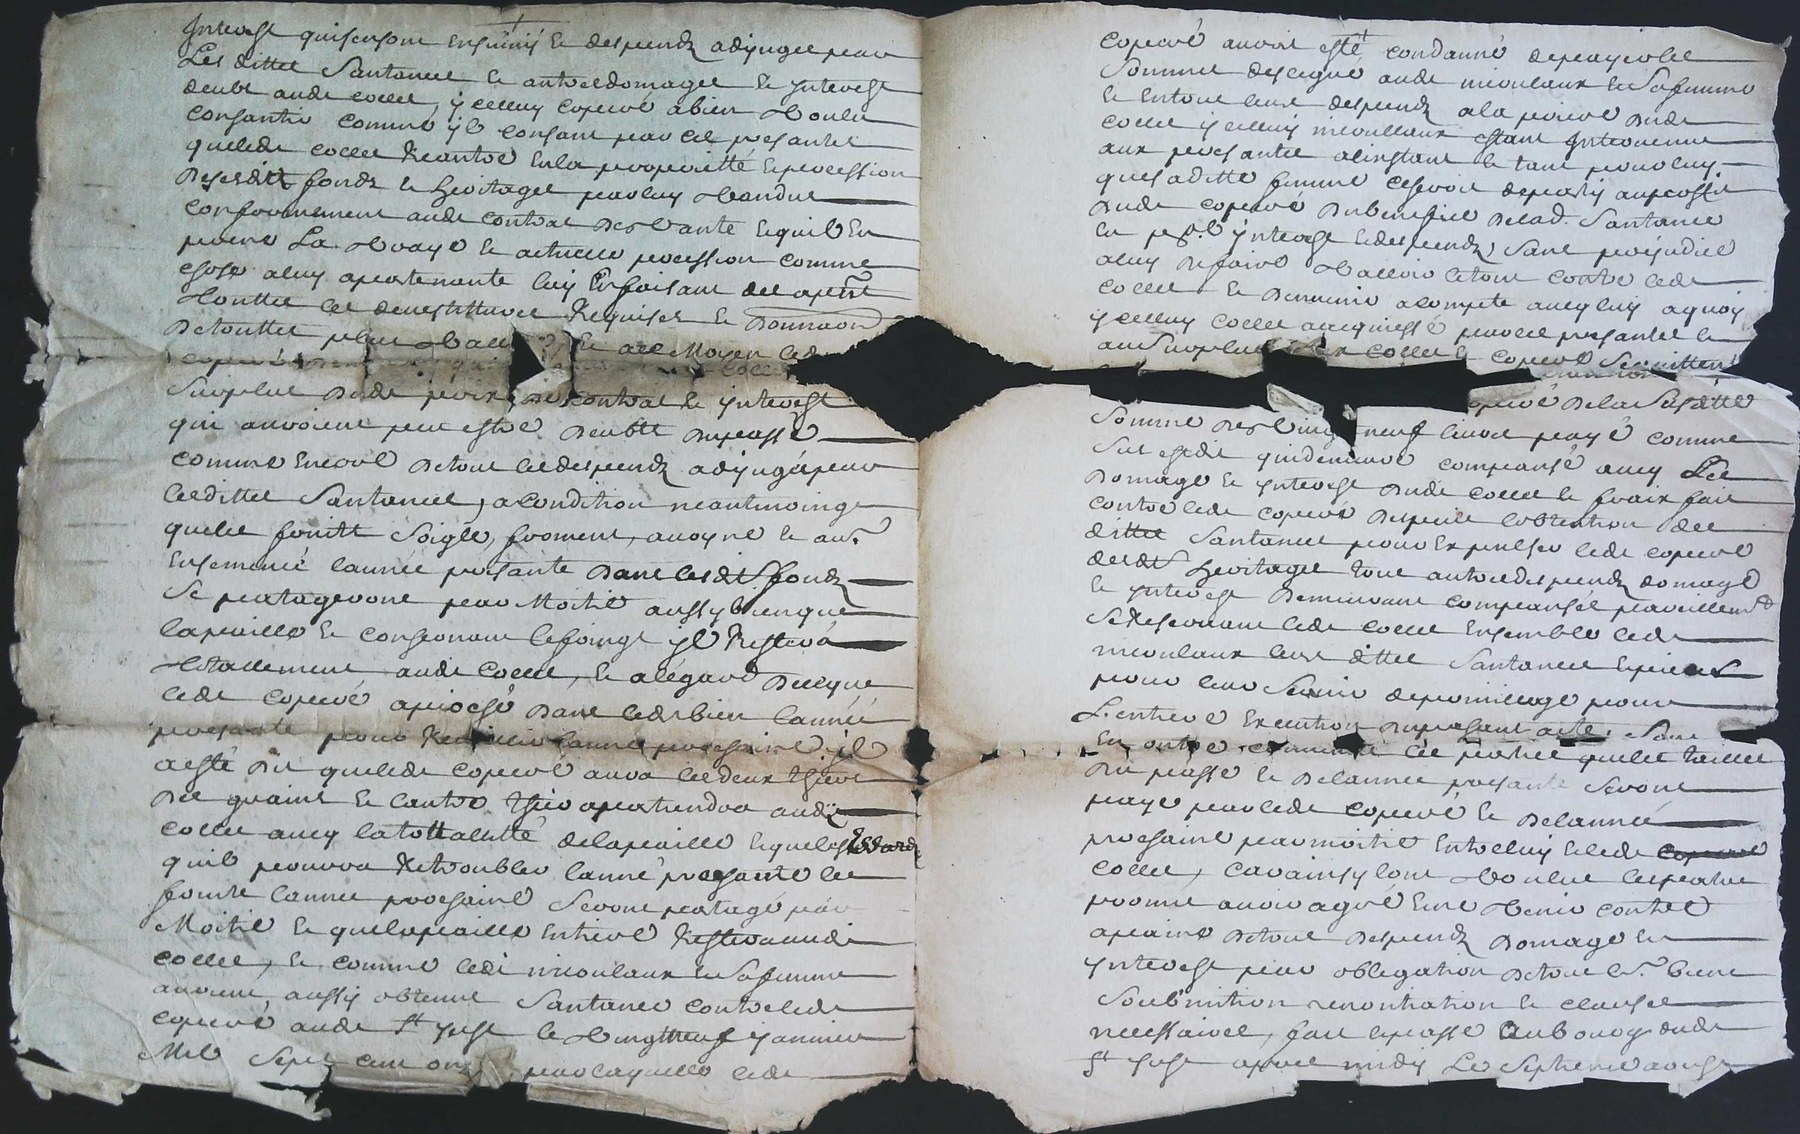 Interest quisensont ensuivis & despendz adjugee par
Les dittes Santance & autre domages & ynterest
deubt aude colle, ycelluy copeiré a bien voulu
consantir comme yl consant par ces presantes
quelede colle Reantre en la proprietté & pocession
desesdits fondz & heritages par luy vandus
conformement aude contrat des vante & quil en
prene La vraye & actuelle pocession comme
chose a luy apartenante luy en faisant des apnt
touttes les demestitures Requises &
de touttes plus vall & ce Moyen lede
copeiré
Surplus dude prix du contrat & ynterest
qui auroient peu estre deubtt du passé
comme encore de tout les despendz adjugé par
lesdittes Santances, a condition neantmoings
quelle fruitt Soigle, froment, avoyne & aut.
Ensemencé lannée presante dans lesdts fondz
Se partageront par Moitié aussy bien que
la paille & consernant le foings yl Restera
totallement aude Colle, & a légard de ce que
lede copeiré apioché dans lesdts bien lannée
presante pour Recuillir lanné prochaine yl
a esté dit quelede copeiré aura les deux thiers
des grains & lautre thier apartiendra aude
colle avecq la tottallitté de la paille & quelesEssards
quil pourra Retroubler lanné presante les
fruits lannee prochaine Seront partagé par
Moitié & quela paille entiere Restera aude
colle, & comme ledt nicoulaux & Sa femme
auroient aussy obtenue Santance contre lede
copeiré aude St Just le vingtneuf janvier
Mil Sept cent onz par laquelle lede
copeiré auroit esté condanné de payer les
Somme desceigné aude nicoulaux & Sa femme
& entout leurs despendz a la priere dude
colle ycelluy nicoullaux estant Intervenue
aux presantes a linstant & tant pour luy
que sa ditte femme ceseroit departy au profit
dude copeiré du benefice de lad. Santance
en ppl ynterest & despendz, Sans prejudice
a luy de faire valloir letout contre lede
colle & de venir a compte avecq luy a quoy
ycelluy colle acquiessé par ces presantes &
au Surplus colle & copeiré Se quitten
copeiré de la Susditte
Somme des vingtneuf livres payé comme
Sus est dit qui demeure compansé avecq Les
Domage & ynterest dude colle & fraix fait
contre lede copeiré despuis lobtention des
dittes Santances pour expulser lede copeiré
desdts heritages tous autre despendz domage
& ynterest demeurant compansés pareillement
Se Reservant lede colle ensemble lede
nicoulaux leurs dittes Santances & pieces
pour leur Servir de pouillage pour
L'entiere Execution du presant acte, Sans
En outre les parties quelle taille
du passé & de lannée presante Seront
paye par lede copeiré & de lannée
prochaine par moitié entre luy & lede
colle, Car ainsy lont voulus les parties
promis avoir agré & ne venir contre
a peine de tout despendz domage &
ynterest par obligation de tous l. biens
Soubmition renontiation & clauses
necessaires, fait & passé au bourg dude
St Just apres midy Le Septieme aoust